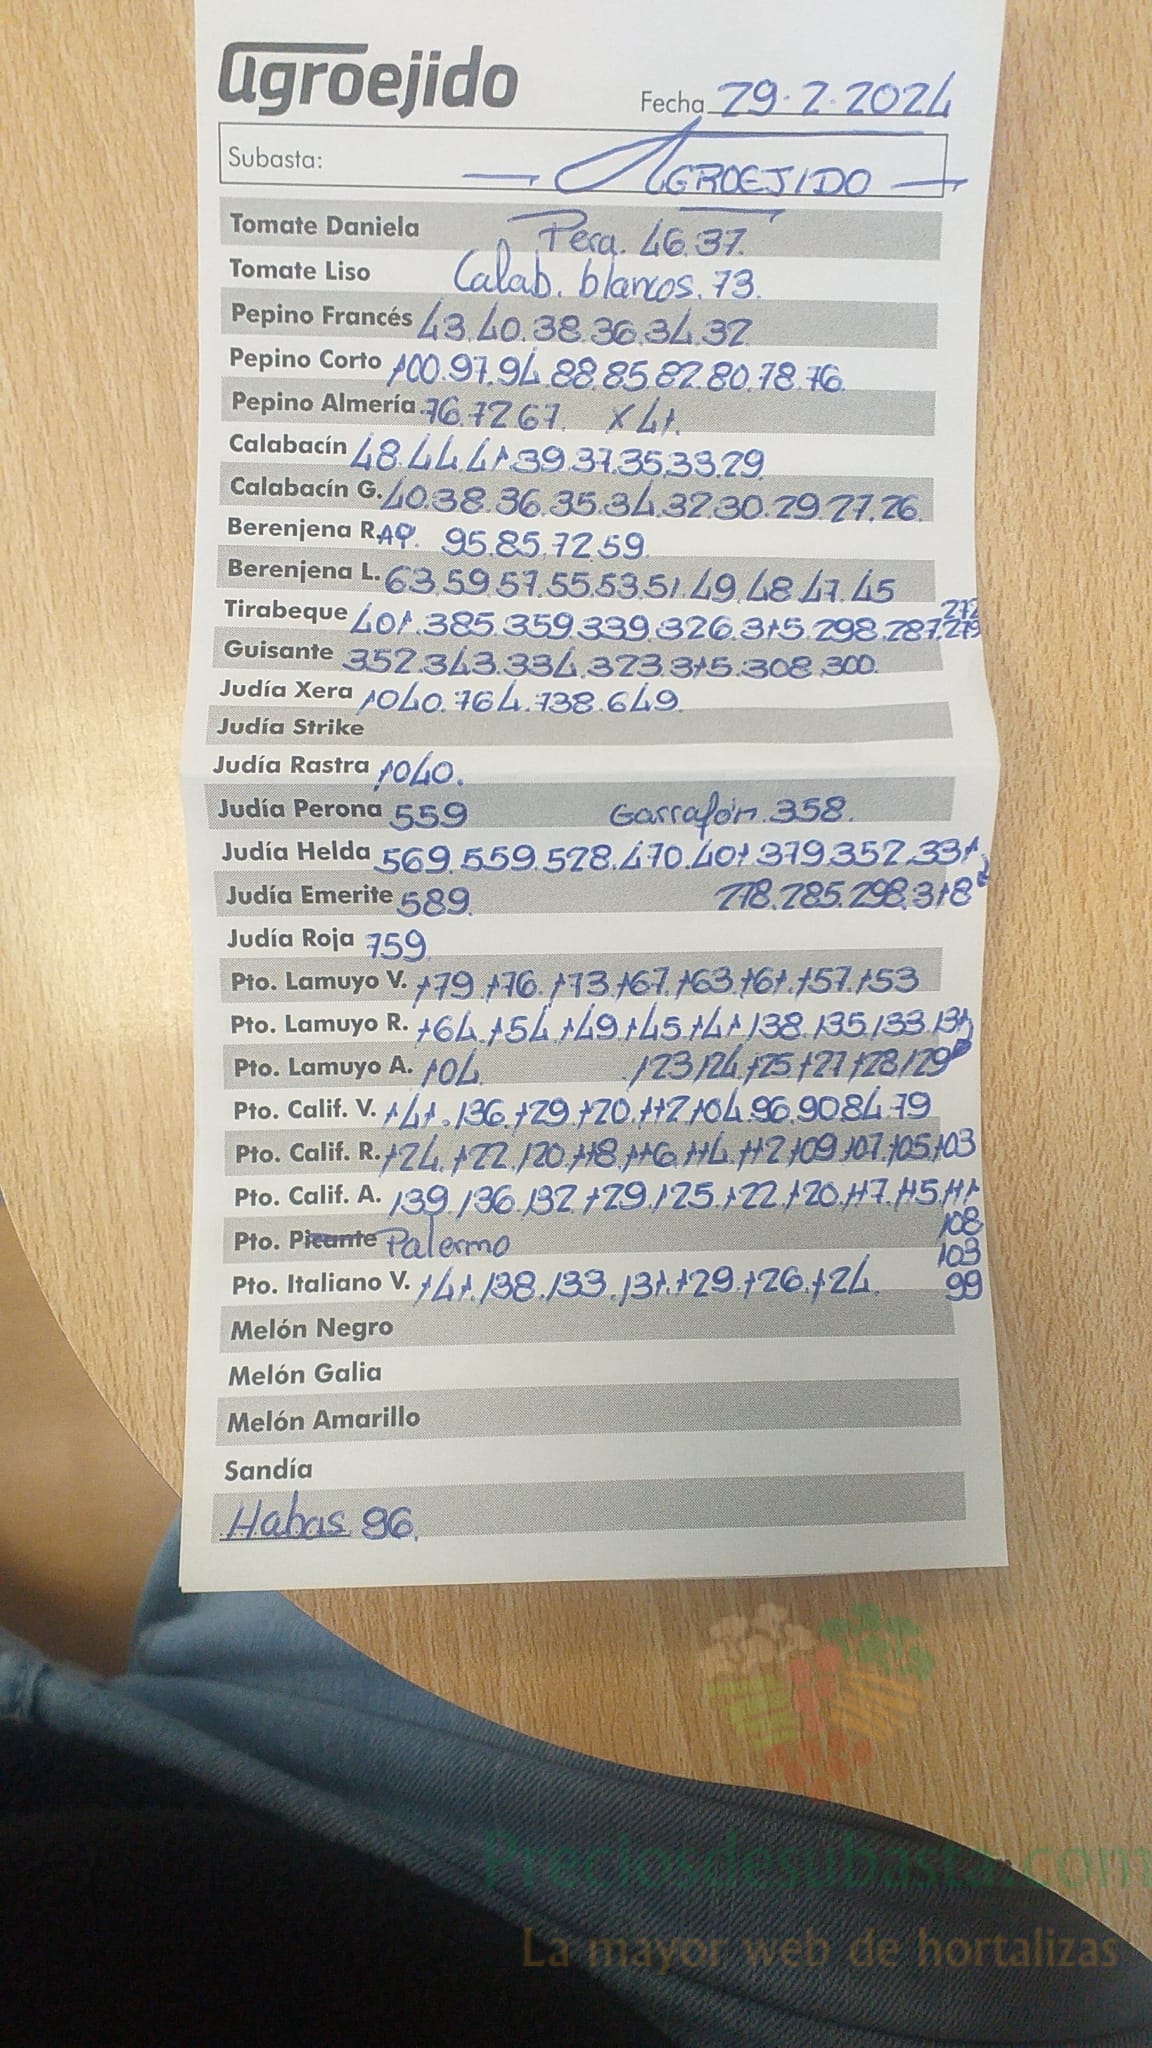 agroejido
Fecha 29.2.2024
Subaсta: — AGROEJIDO —
Tomate Daniela Pera. 46.37.
Tomate Liso Calab. blancos. 73.
Pepino Francés 43.40.38.36.34.32
Pepino Corto 100.97.94.88.85.82.80.78.76.
Pepino Almería 76.72.67. X 41.
Calabacín 48.44.41.39.37.35.33.29
Calabacín G. 40.38.36.35.34.32.30.29.27.26.
Berenjena RAY. 95.85.72.59.
Berenjena L. 63.59.57.55.53.51.49.48.47.45
Tirabeque 401.385.359.339.326.315.298.287.279 272
Guisante 352.343.334.323.315.308.300.
Judía Xera 1040.764.738.649.
Judía Strike
Judía Rastra 1040.
Judía Perona 559 Garrafón. 358.
Judía Helda 569.559.528.470.401.379.352.331.
Judía Emerite 589. 278.285.298.318
Judía Roja 759.
Pto. Lamuyo V. 179.176.173.167.163.161.157.153
Pto. Lamuyo R. 164.154.149.145.141.138.135.133.131
Pto. Lamuyo A. 104. 123.124.125.127.128.129
Pto. Calif. V. 141.136.129.120.112.104.96.90.84.79
Pto. Calif. R. 124.122.120.118.116.114.112.109.107.105.103
Pto. Calif. A. 139.136.132.129.125.122.120.117.115.111
Pto. Picante Palermo 108
103
Pto. Italiano V. 141.138.133.131.129.126.124. 99
Melón Negro
Melón Galia
Melón Amarillo
Sandía
Habas 96.
Preciosdesubasta.com
La mayor web de hortalizas